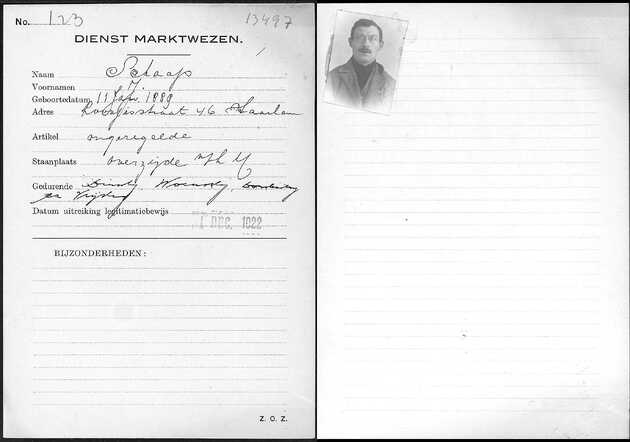 No. 123
13497
DIENST MARKTWEZEN.
Naam Schaap
Voornamen J.
Geboortedatum 11 1889
Adres 46 Haarlem
Artikel ongeregelde
Staanplaats overzijde v/h IJ
Gedurende Dinsdag, Woensdag, Donderdag
en Vrijdag
Datum uitreiking legitimatiebewijs 1 DEC. 1922
BIJZONDERHEDEN:
Z. O. Z.